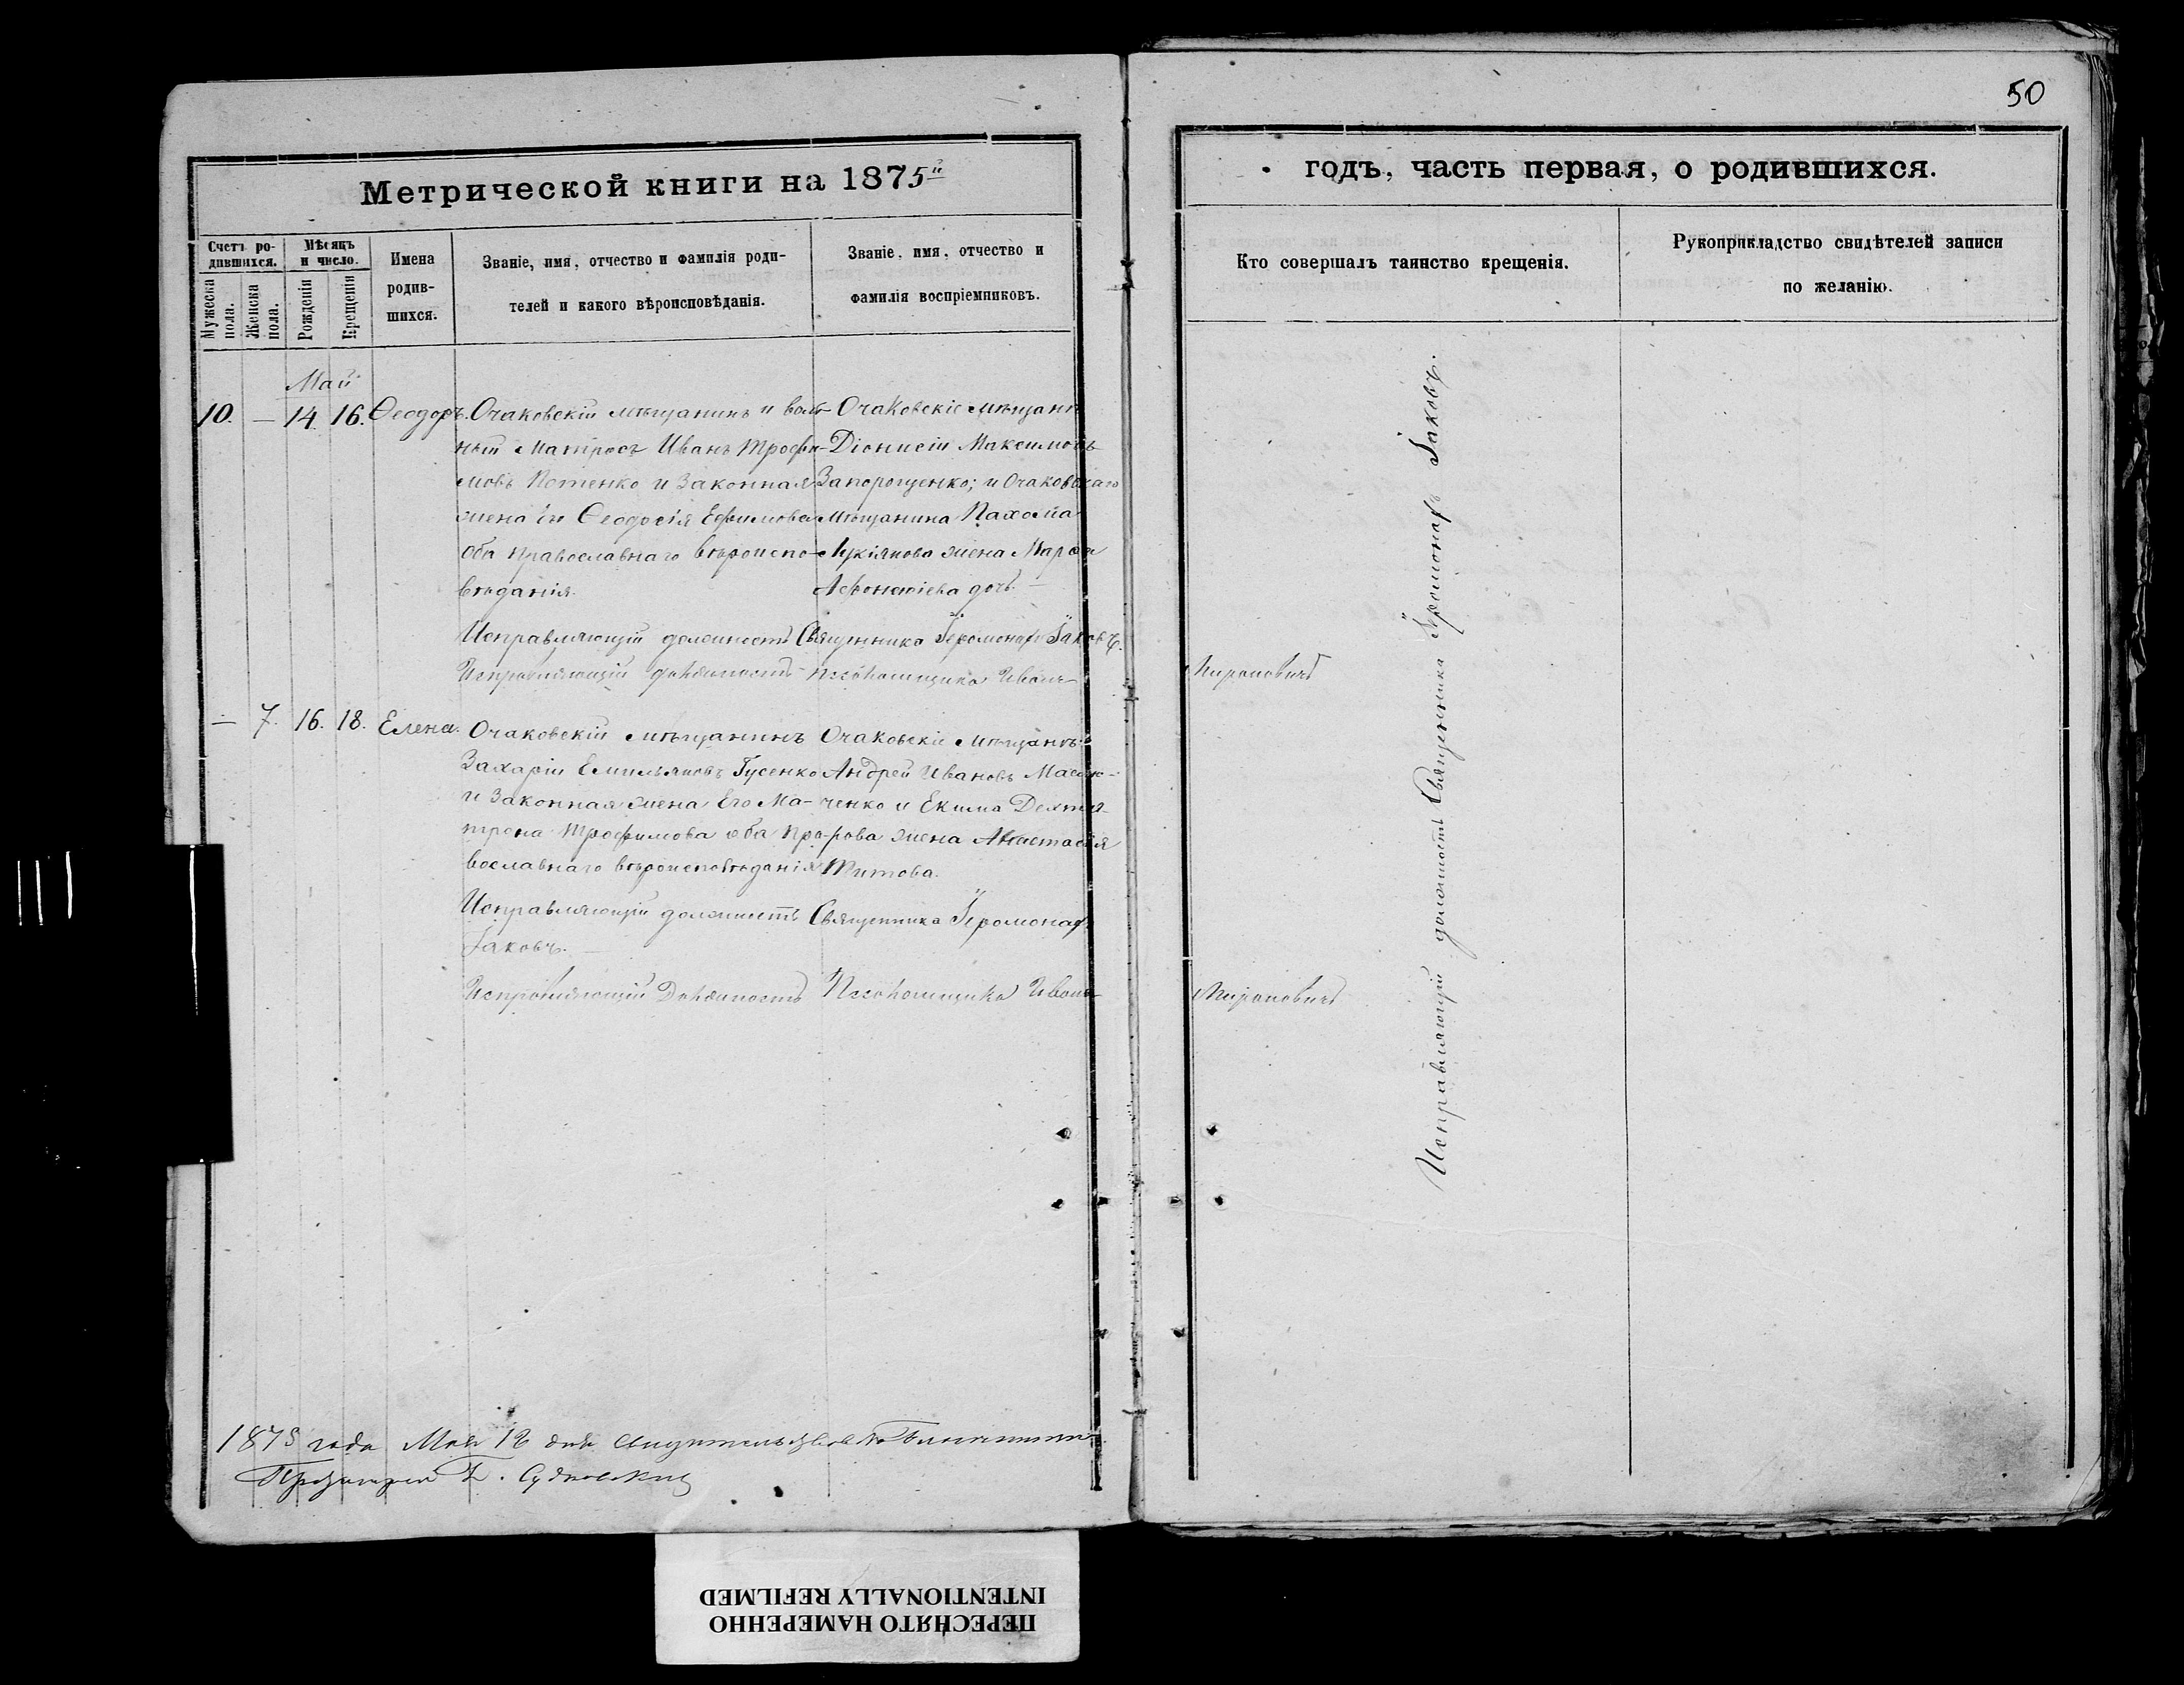 50
Метрической книги на 1875й
годъ, часть первая, о родившихся.
Счетъ ро-
дившихся.
Мѣсяцъ
и число.
Мужеска
пола.
Женска
пола.
Рожденія
Крещенія
Имена
родив-
шихся.
Званіе, имя, отчество и фамилія роди-
телей и какого вѣроисповѣданія.
Званіе, имя, отчество и
фамилія воспріемниковъ.
Кто совершалъ таинство крещенія.
Рукоприкладство свидѣтелей записи
по желанію.
Май
10. — 14. 16. Ѳеодоръ.
Очаковскій мѣщанинъ и воль-
ный матросъ Иванъ Трофи-
мовъ Потенко и законная
жена его Ѳеодосія Ефимова
оба православнаго вѣроиспо-
вѣданія.
Очаковскіе мѣщане
Діонисій Максимовъ
Запорощенко; и Очаковскаго
мѣщанина Пахома
Лукіянова жена Марѳа
Афонасіева дочь. —
Исправляющій должность Священника Іеромонахъ Іаковъ.
Исправляющій должность Псаломщика Иванъ Мироновичъ
— 7. 16. 18. Елена.
Очаковскій мѣщанинъ
Захарій Емильяновъ Гусенко
и законная жена его Ма-
трона Трофимова оба пра-
вославнаго вѣроисповѣданія
Очаковскіе мѣщане
Андрей Ивановъ
ченко и Екима Дехтя-
рова жена Анастасія
Титова.
Исправляющій должность Священника Іеромонахъ
Іаковъ. —
Исправляющій должность Псаломщика Иванъ Мироновичъ
Исправляющій должность Священника Іеромонахъ Іаковъ.
1875 года Мая 18 дня свидетельствовалъ Благочинный
Протоіерей Г. Судковскій
ПЕРЕСНЯТО НАМЕРЕННО
INTENTIONALLY REFILMED